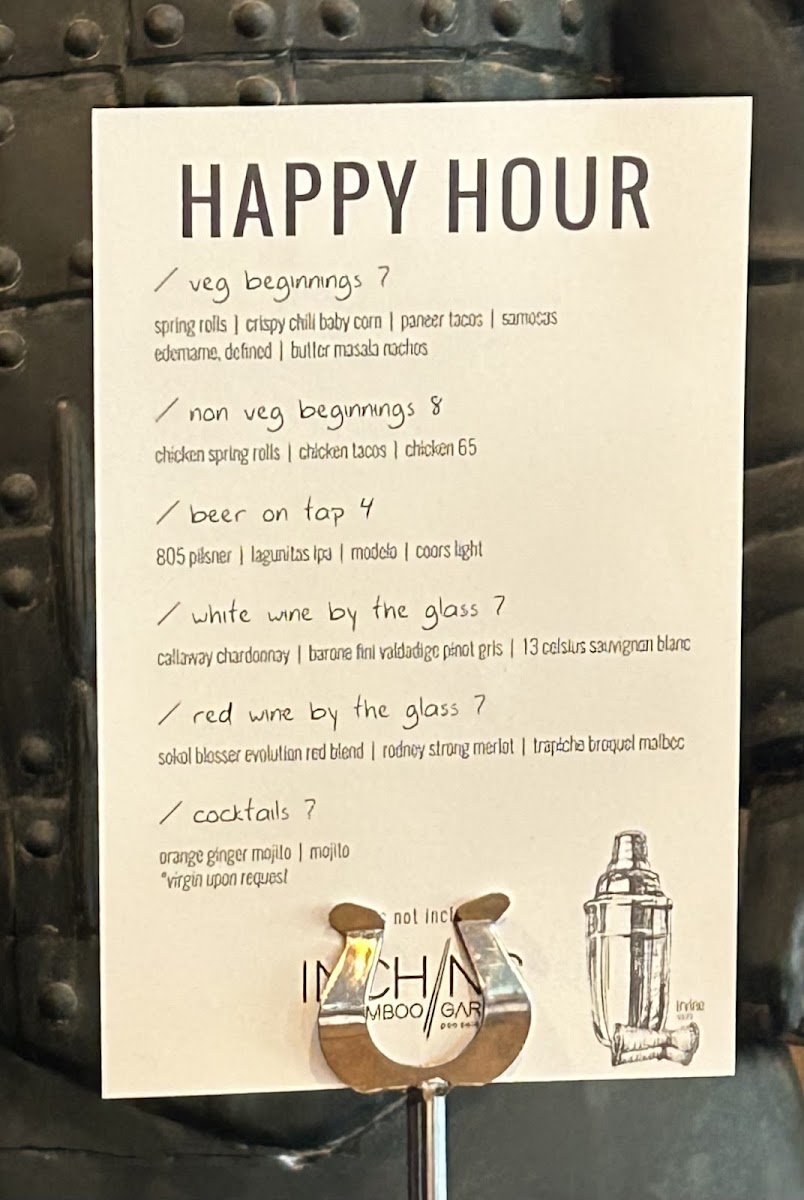 HAPPY HOUR
/ veg beginnings 7
spring rolls | crispy chili baby corn | paneer tacos | samosas
edemame, defined | butter masala nachos
/ non veg beginnings 8
chicken spring rolls | chicken tacos | chicken 65
/ beer on tap 4
805 pilsner | lagunitas ipa | modelo | coors light
/ white wine by the glass 7
callaway chardonnay | barone fini valdadige pinot gris | 13 celsius sauvignon blanc
/ red wine by the glass 7
sokol blosser evolution red blend | rodney strong merlot | trapiche broquel malbec
/ cocktails 7
orange ginger mojito | mojito
*virgin upon request
not incl
CH/N
MBOO // GAR
irvine